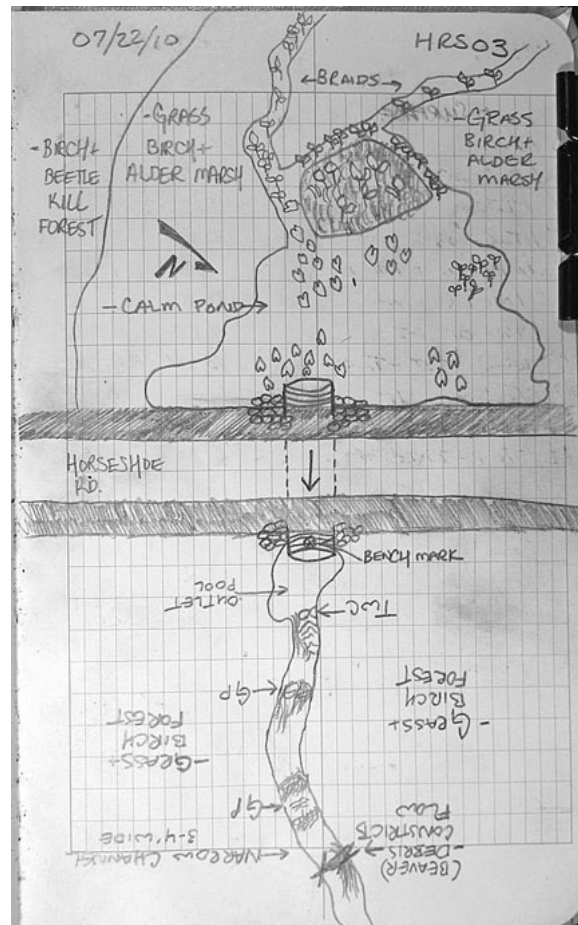 07/22/10
HRS03
←BRAIDS→
-GRASS
BIRCH+
ALDER MARSH
-GRASS
BIRCH+
ALDER
MARSH
-BIRCH+
BEETLE
KILL
FOREST
N
-CALM POND→
HORSESHOE
RD.
BENCH MARK
OUTLET
POOL
←TWC
GP→
-GRASS+
BIRCH
FOREST
-GRASS+
BIRCH
FOREST
GP→
-NARROW CHANNEL
3-4' WIDE
(BEAVER)
-DEBRIS
CONSTRICTS
FLOW